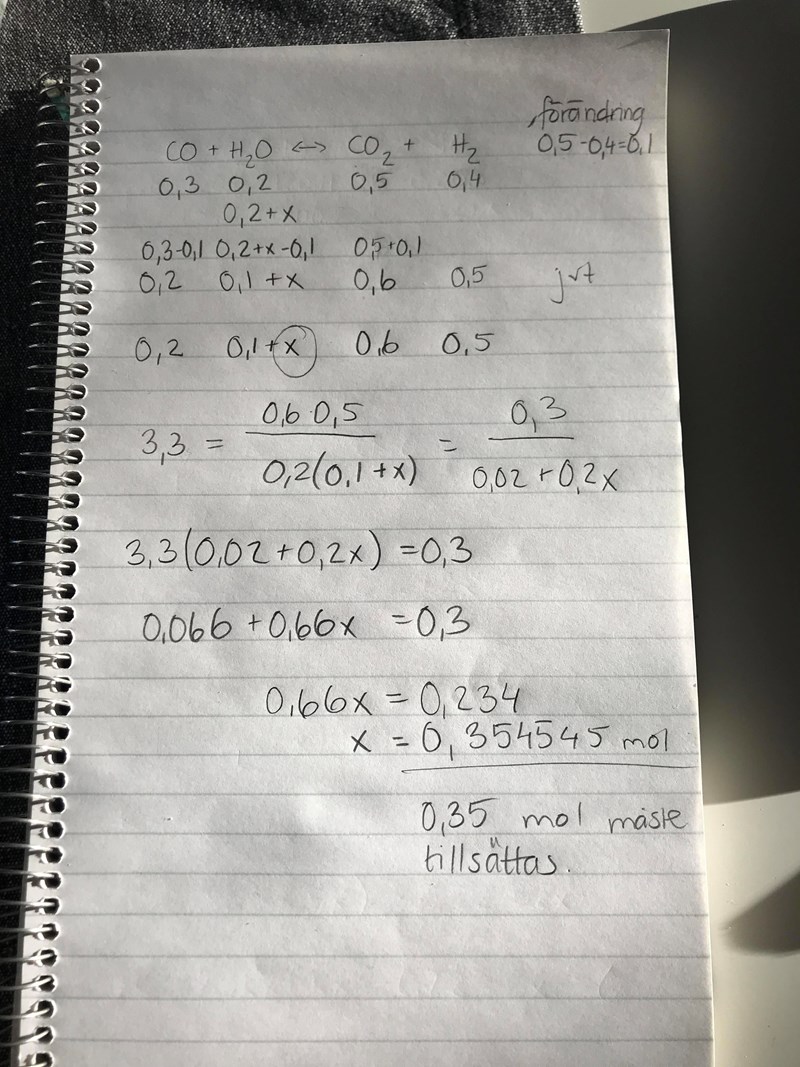 förändring
CO + H₂O ↔ CO₂ + H₂ 0,5-0,4=0,1
0,3 0,2 0,5 0,4
0,2+x
0,3-0,1 0,2+x-0,1 0,5+0,1
0,2 0,1+x 0,6 0,5 jvt
0,2 0,1+x 0,6 0,5
3,3 = 0,6·0,5 / 0,2(0,1+x) = 0,3 / 0,02+0,2x
3,3(0,02+0,2x) =0,3
0,066+0,66x =0,3
0,66x = 0,234
x = 0,354545 mol
0,35 mol måste
tillsättas.